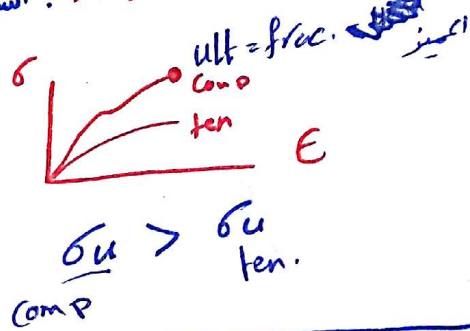 ult = frac.
σ
comp
ten
ε
σu > σu
comp
ten.